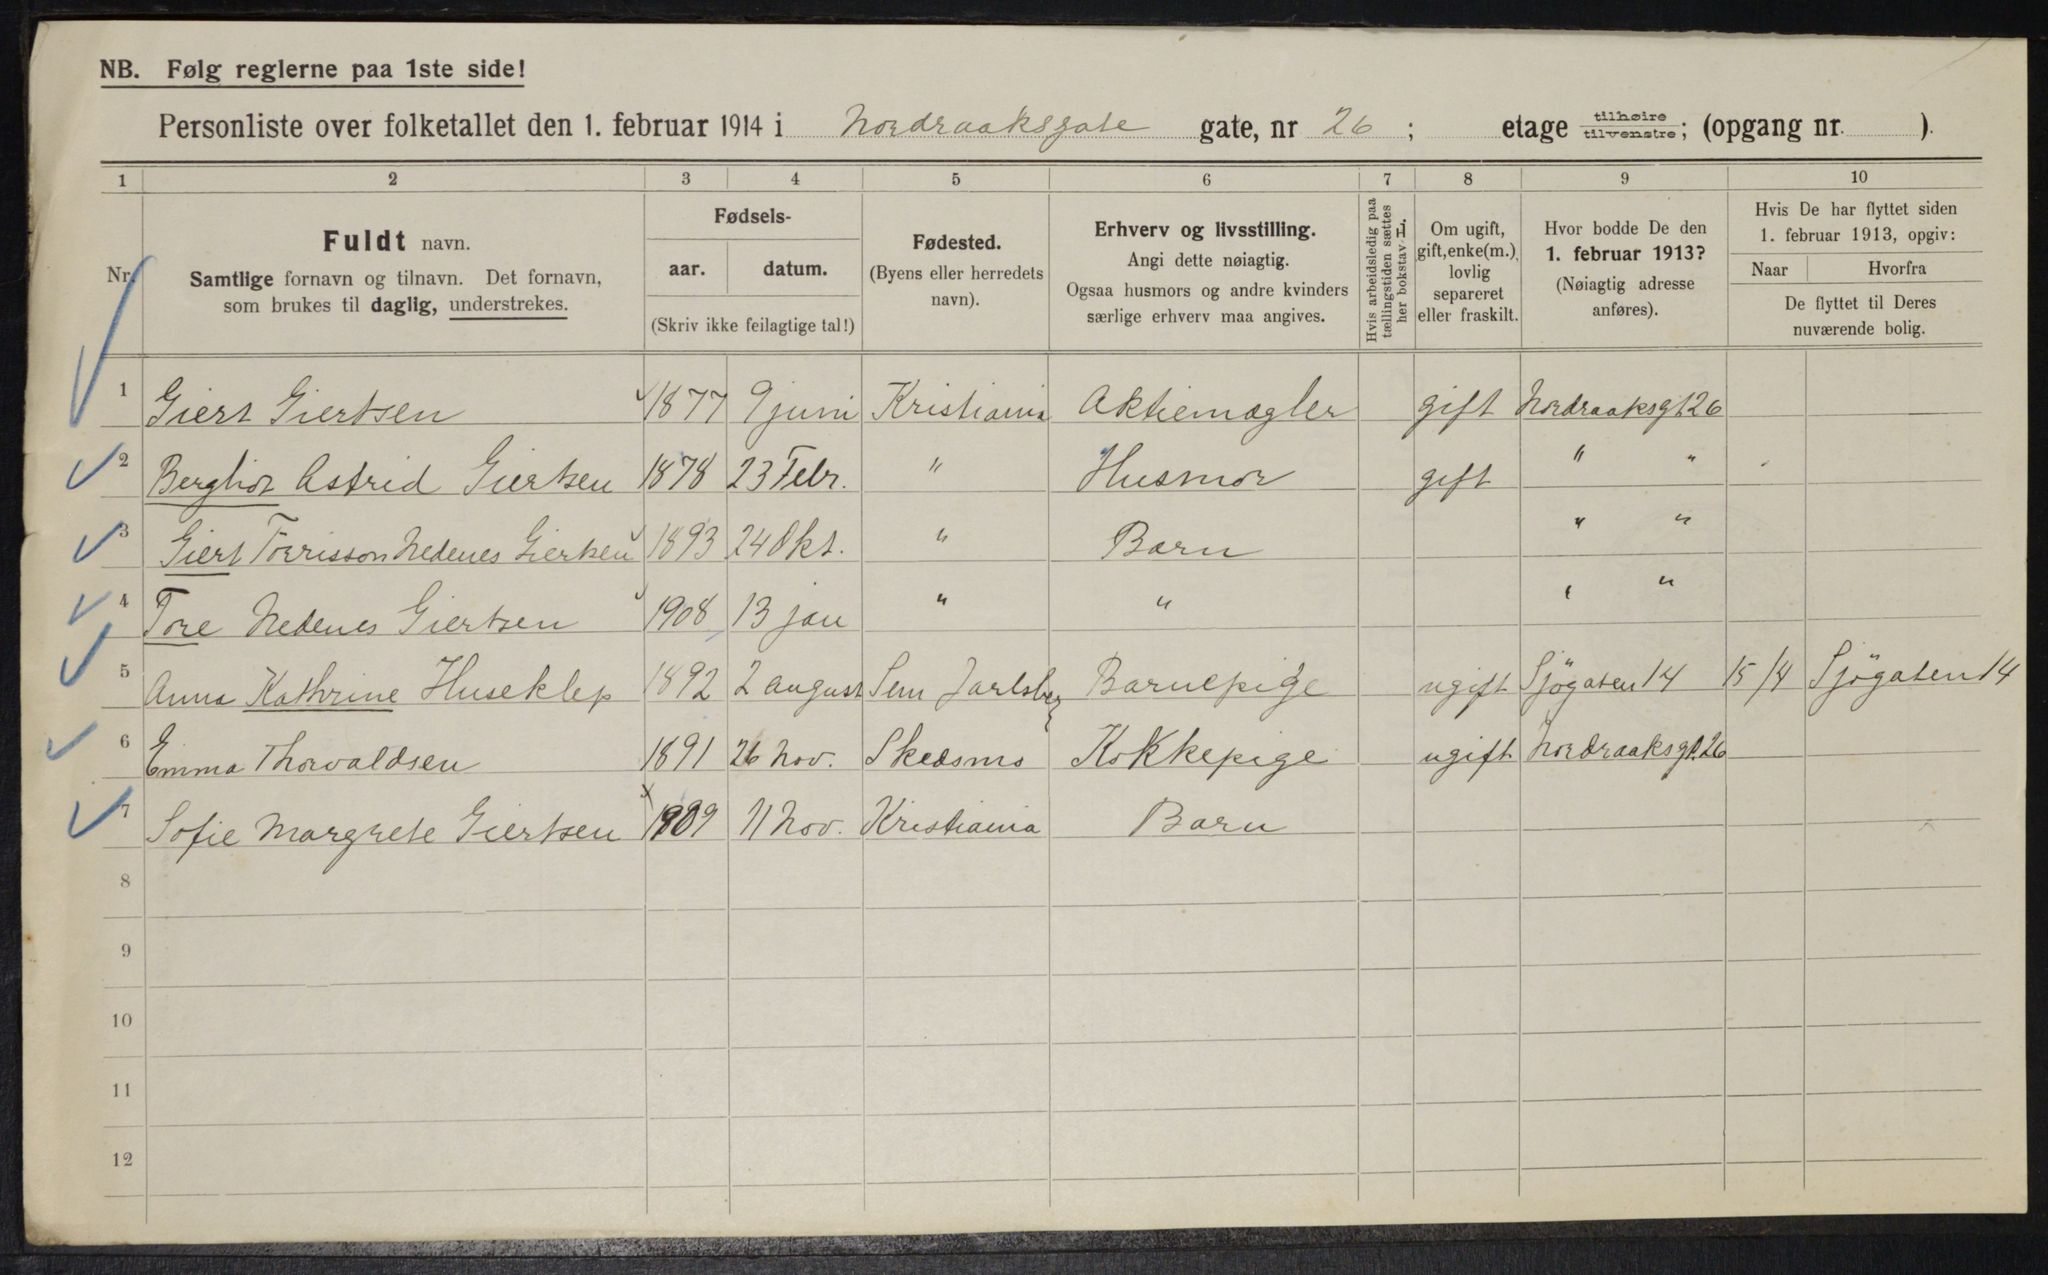 NB. Følg reglerne paa 1ste side!
Personliste over folketallet den 1. februar 1914 i Nordraaksgate gate, nr 26 ; etage tilhøire/tilvenstre; (opgang nr. ).
1 2 3 4 5 6 7 8 9 10
Nr.
Fuldt navn.
Samtlige fornavn og tilnavn. Det fornavn,
som brukes til daglig, understrekes.
Fødsels-
aar. datum.
(Skriv ikke feilagtige tal!)
Fødested.
(Byens eller herredets
navn).
Erhverv og livsstilling.
Angi dette nøiagtig.
Ogsaa husmors og andre kvinders
særlige erhverv maa angives.
Hvis arbeidsledig paa
tællingstiden sættes
her bokstav L.
Om ugift,
gift, enke(m.),
lovlig
separeret
eller fraskilt.
Hvor bodde De den
1. februar 1913?
(Nøiagtig adresse
anføres).
Hvis De har flyttet siden
1. februar 1913, opgiv:
Naar Hvorfra
De flyttet til Deres
nuværende bolig.
1 Giert Giertsen 1877 9 juni Kristiania Aktiemægler gift Nordraaksgt 26
2 Berghot Astrid Giertsen 1878 23 Febr. " Husmor gift " "
3 Giert Torrisson Nedenes Giertsen 1893 24 Okt. " Barn " "
4 Tore Nedenes Giertsen 1908 13 jan " " " "
5 Anna Kathrine Huseklep 1892 2 august Sem Jarlsberg Barnepige ugift Sjögaten 14 15/4 Sjögaten 14
6 Emma Thorvaldsen 1891 26 Nov. Skedsmo Kokkepige ugift Nordraaksgt. 26
7 Sofie Margrete Giertsen 1909 11 Nov. Kristiania Barn
8
9
10
11
12